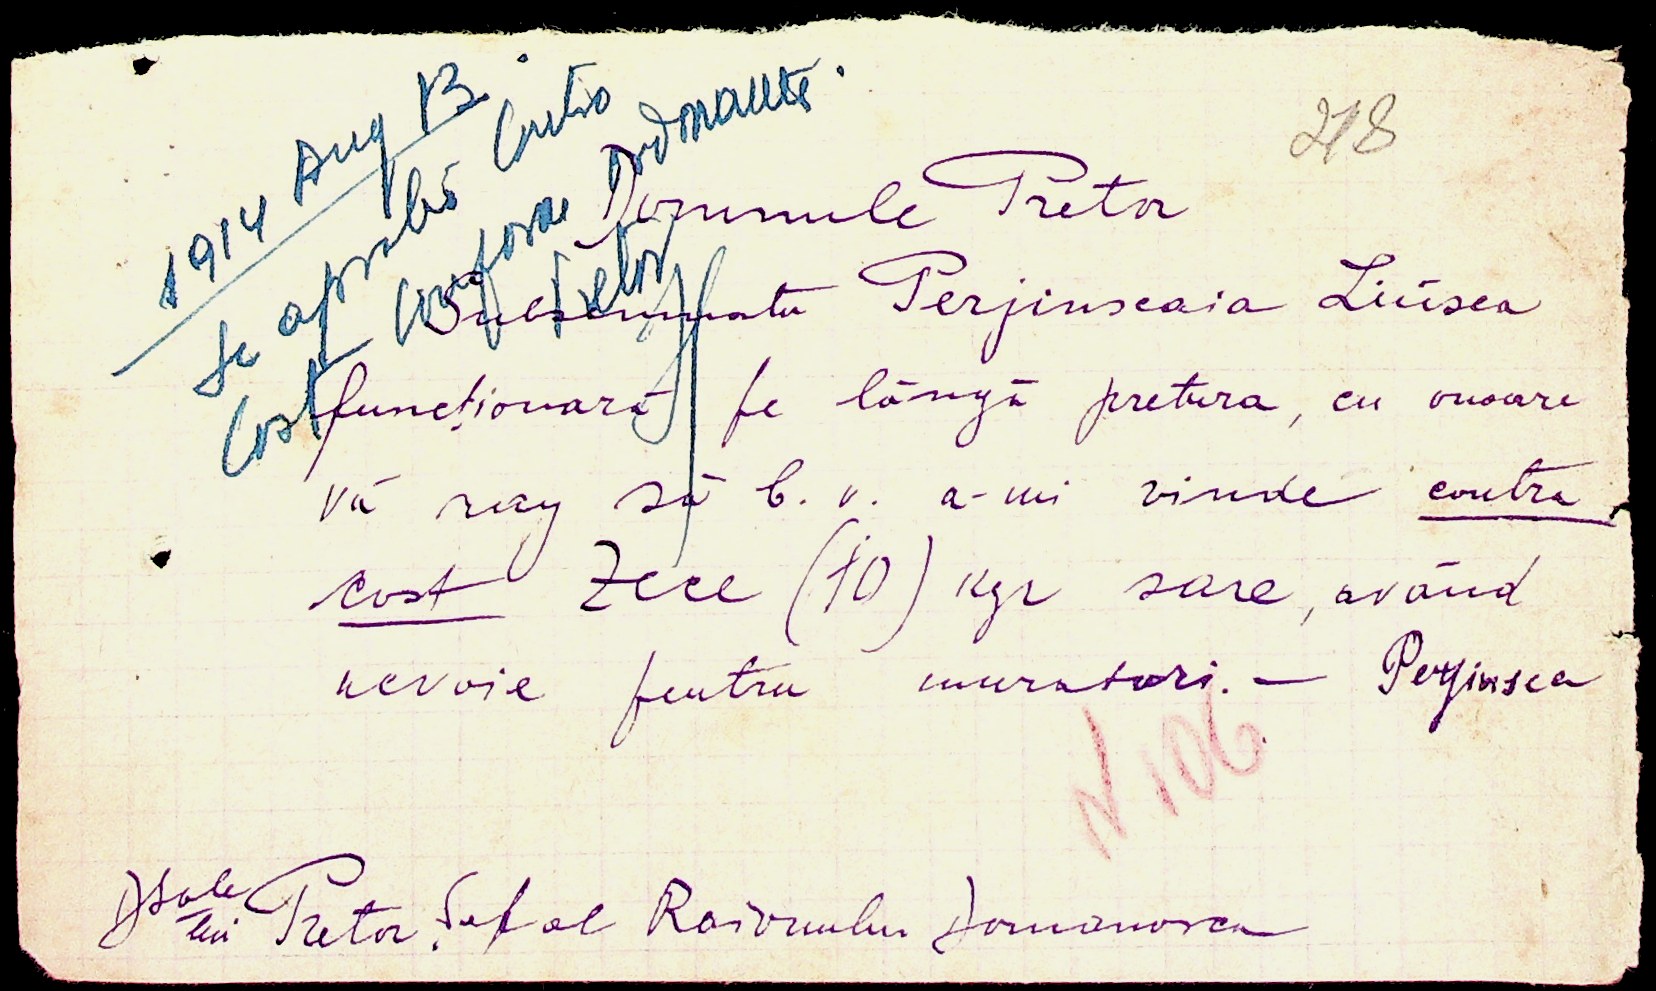 218
1914 Aug 13
Se aprobă contra
cost conform ordonanței.
Pretor
Domnule Pretor
Subsemnata Perjinscaia Liusea
funcționară pe lângă pretura, cu onoare
vă rog să b. v. a-mi vinde contra
cost Zece (10) kgr sare, având
nevoie pentru muraturi. — Perjinsca
N 106
Dsale
lui Pretor Șef al Raionului Domanovca